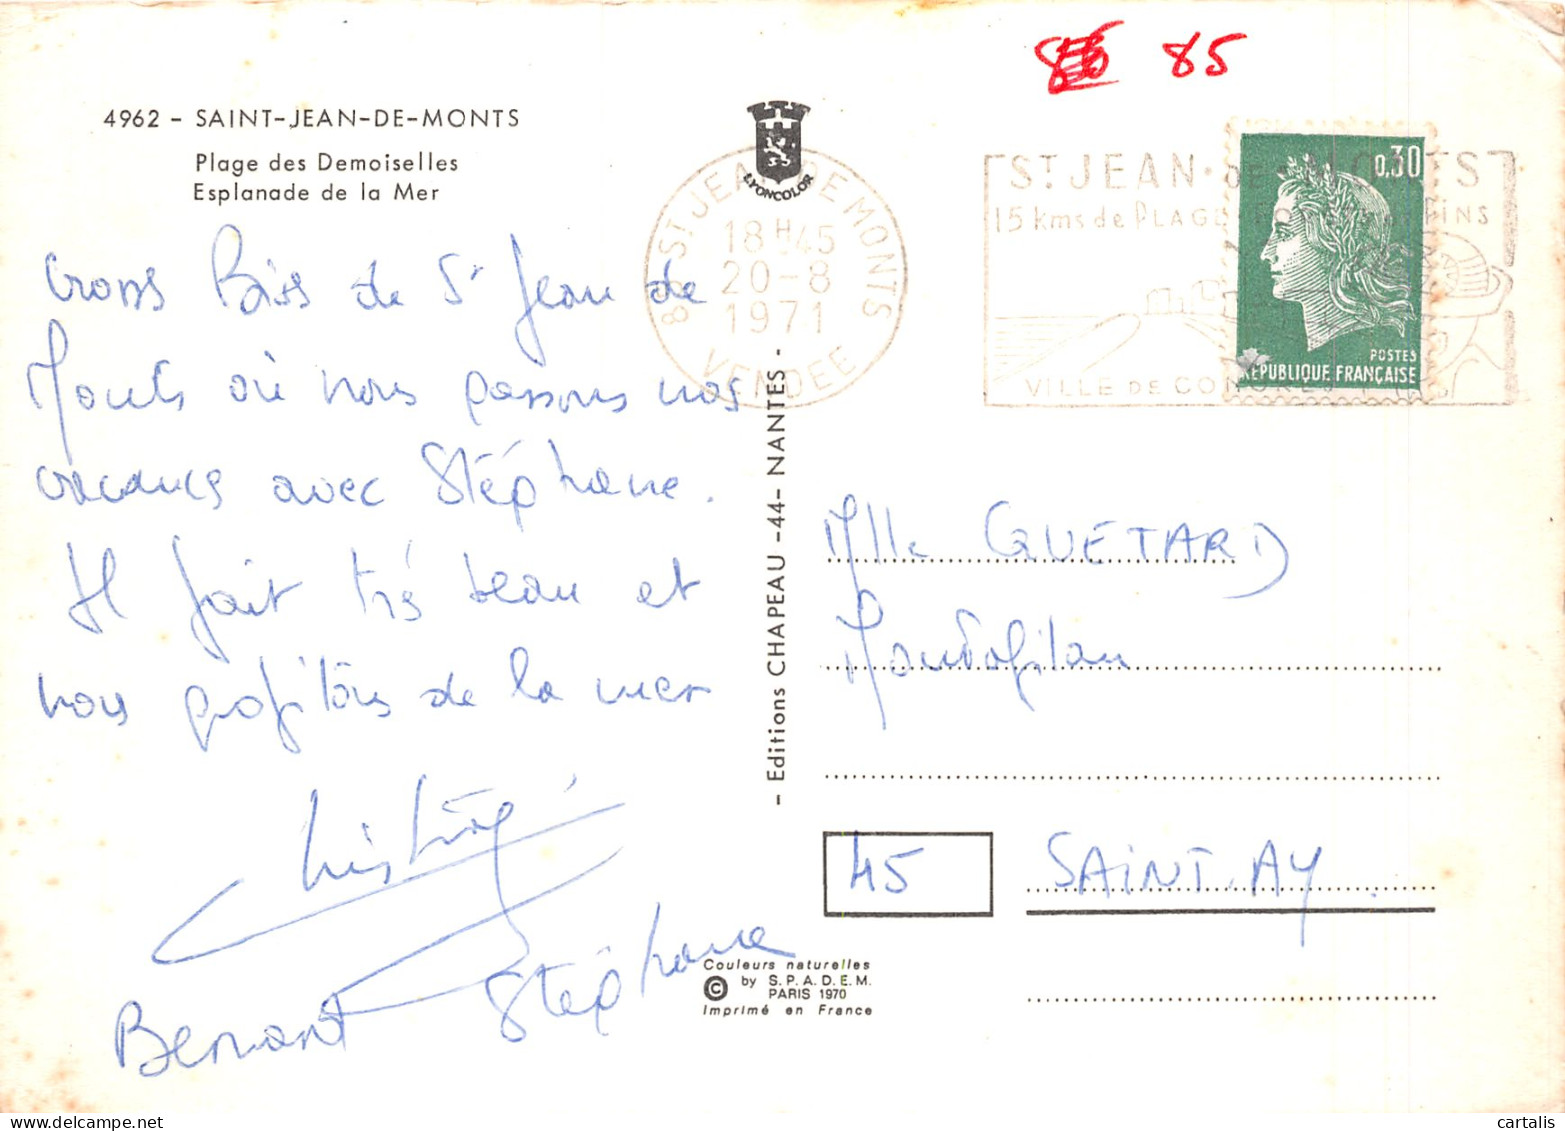 85 85
4962 - SAINT-JEAN-DE-MONTS
Plage des Demoiselles
Esplanade de la Mer
LYONCOLOR
85 ST JEAN DE MONTS
18 H 45
20-8
1971
VENDEE
ST JEAN-DE-MONTS
15 kms de PLAGE PINS
VILLE DE CONGRES
0,30
POSTES
REPUBLIQUE FRANÇAISE
Gros Bises de St Jean de
Monts où nous passons nos
vacances avec Stéphane.
Il fait très beau et
nous profitons de la mer
Christine
Bernard Stéphane
- Editions CHAPEAU -44- NANTES -
Mlle QUETARD
45 SAINT. AY.
Couleurs naturelles
© by S.P.A.D.E.M.
PARIS 1970
Imprimé en France
cartalis